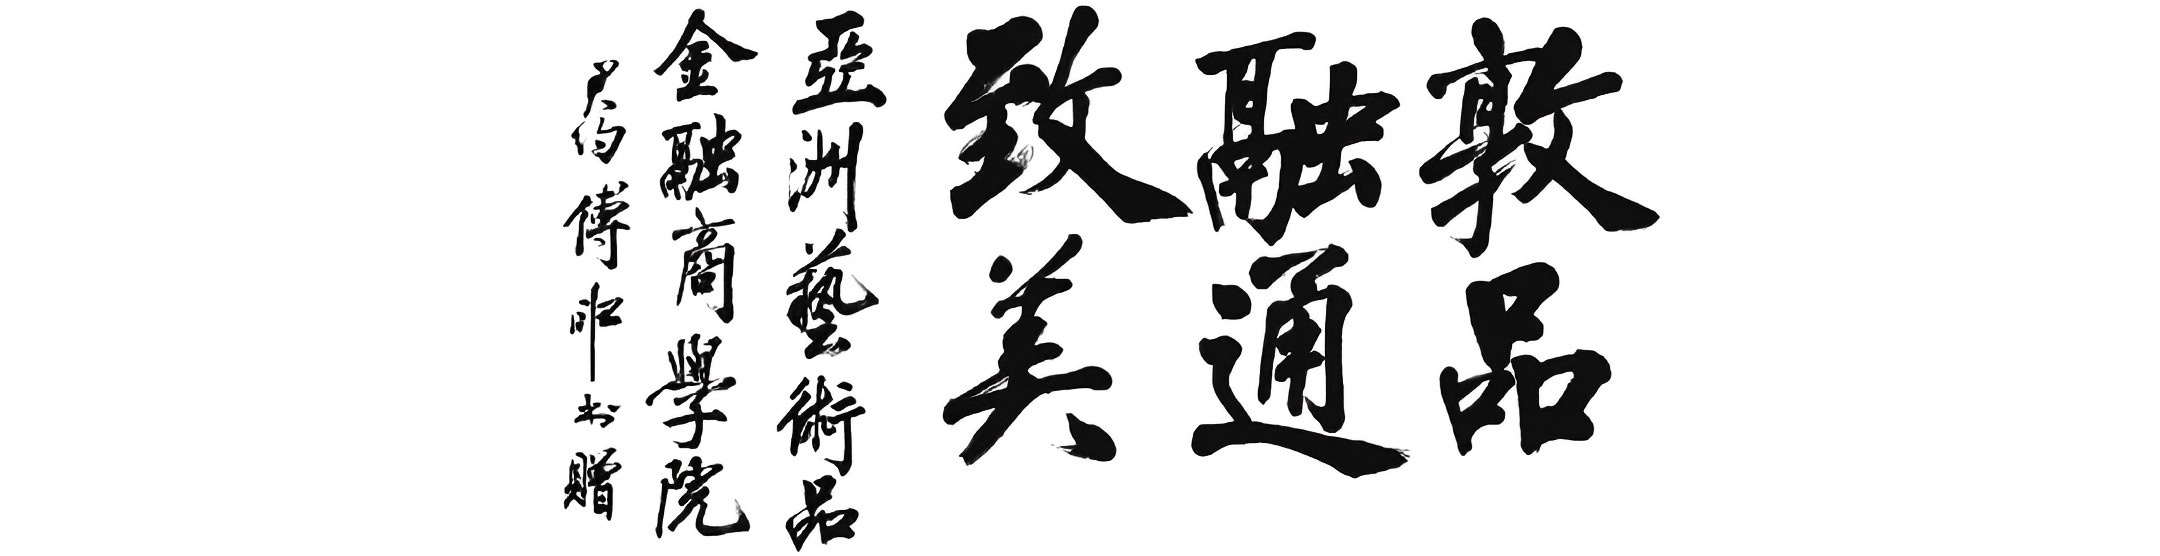 敦品
融通
致美
亞洲藝術品
金融商學院
君約傅申書贈